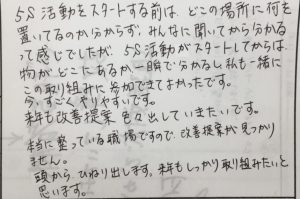 5S活動をスタートする前は、どこの場所に何を
置いてるのか分からず、みんなに聞いてから分かる
って感じでしたが、5S活動がスタートしてからは
物がどこにあるか一瞬で分かるし私も一緒に
この取り組みに参加できてよかったです。
今、すごくやりやすいです。
来年も改善提案色々出していきたいです。
本当に整っている職場ですので、改善提案が見つかり
ません。
頭からひねり出します。来年もしっかり取り組みたいと
思います。